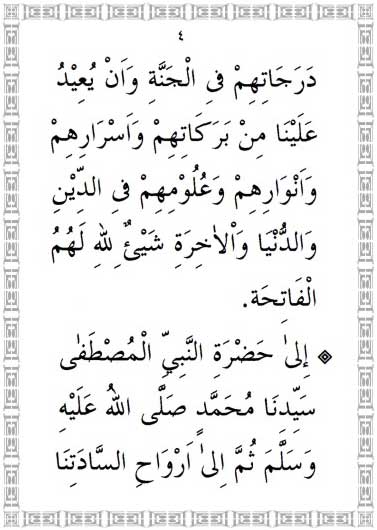 ٤
دَرَجَاتِهِمْ فِى الْجَنَّةِ وَاَنْ يُعِيْدُ
عَلَيْنَا مِنْ بَرَكَاتِهِمْ وَاَسْرَارِهِمْ
وَاَنْوَارِهِمْ وَعُلُوْمِهِمْ فِى الدِّيْنِ
وَالدُّنْيَا وَاْلاٰخِرَةِ شَيْئٌ لِلّٰهِ لَهُمُ
الْفَاتِحَة.
۞ إِلىٰ حَضْرَةِ النَّبِيِّ الْمُصْطَفٰى
سَيِّدِنَا مُحَمَّدٍ صَلَّى اللهُ عَلَيْهِ
وَسَلَّمَ ثُمَّ اِلىٰ اَرْوَاحِ السَّادَتِنَا